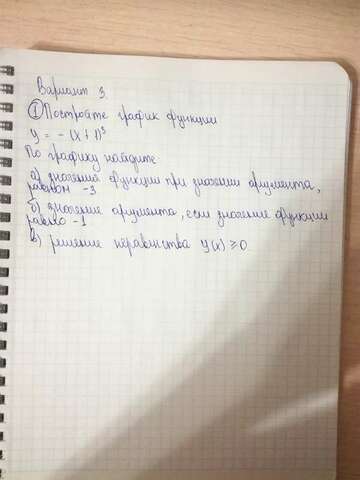 Вариант 3.
① Постройте график функции
y = -(x+1)³
По графику найдите
а) значение функции при значении аргумента,
равном -3
б) значение аргумента, если значение функции
равно -1
в) решение неравинства y(x) ≥ 0